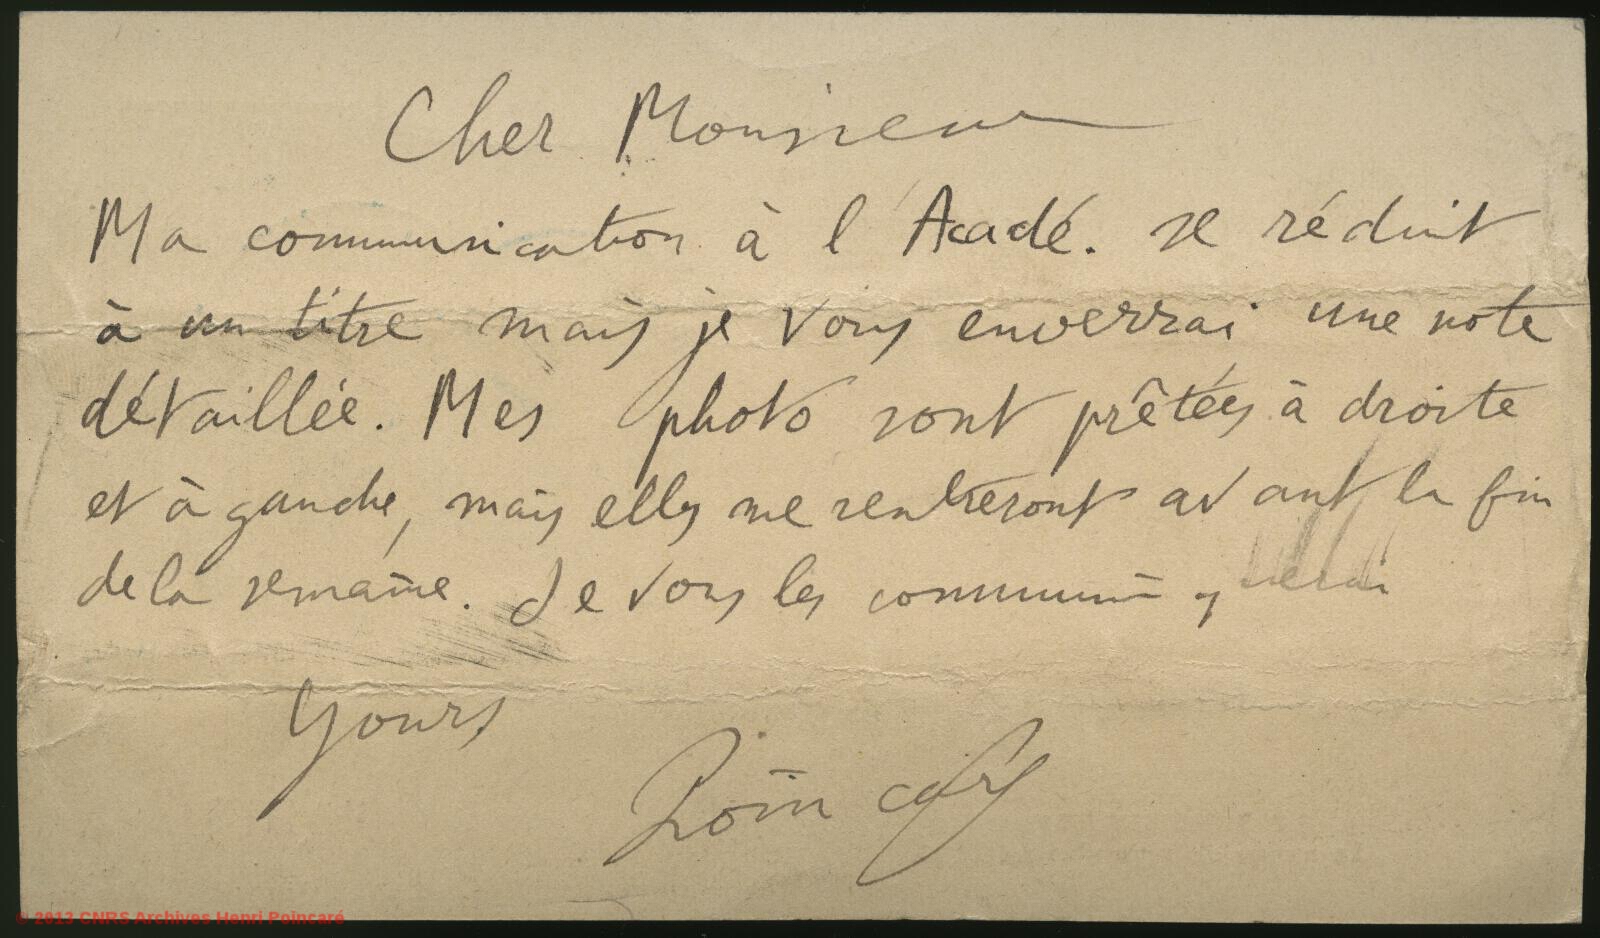 Cher Monsieur
Ma communication à l'Acadé. se réduit
à un titre mais je vous enverrai une note
détaillée. Mes photo sont prêtées à droite
et à gauche, mais elles ne rentreront avant la fin
de la semaine. Je vous les communiquerai
Yours
Poincaré
© 2013 CNRS Archives Henri Poincaré